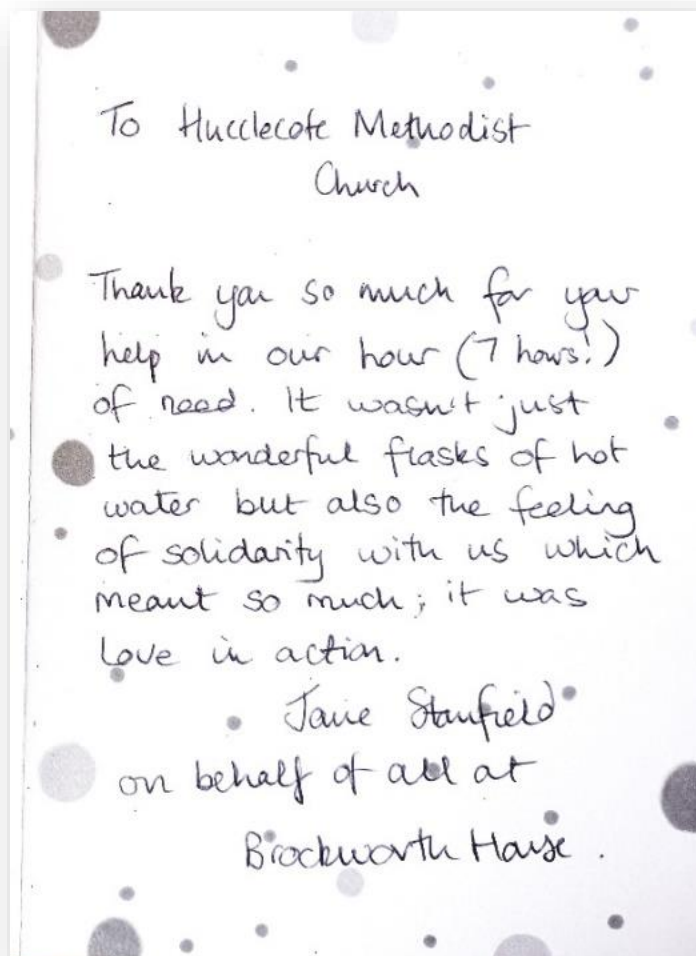 To Hucclecote Methodist
Church
Thank you so much for your
help in our hour (7 hours!)
of need. It wasn't just
the wonderful flasks of hot
water but also the feeling
of solidarity with us which
meant so much; it was
love in action.
Jane Stanfield
on behalf of all at
Brockworth House.